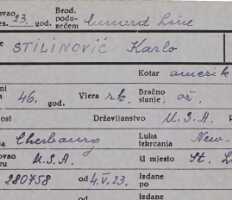 ovao es. 23. god. Brod. podu- zećem Cunard Line
e STILINOVIĆ Karlo
Kotar amerik
ni 46. god. Vjera r.k. Bračno stanje ož.
ost Državljanstvo U.S.A.
Cherbourg Luka Izkrcania New-
ovao U.S.A. U mjesto St. L
280758 od 4.V.23. Izdane po
od Izdane